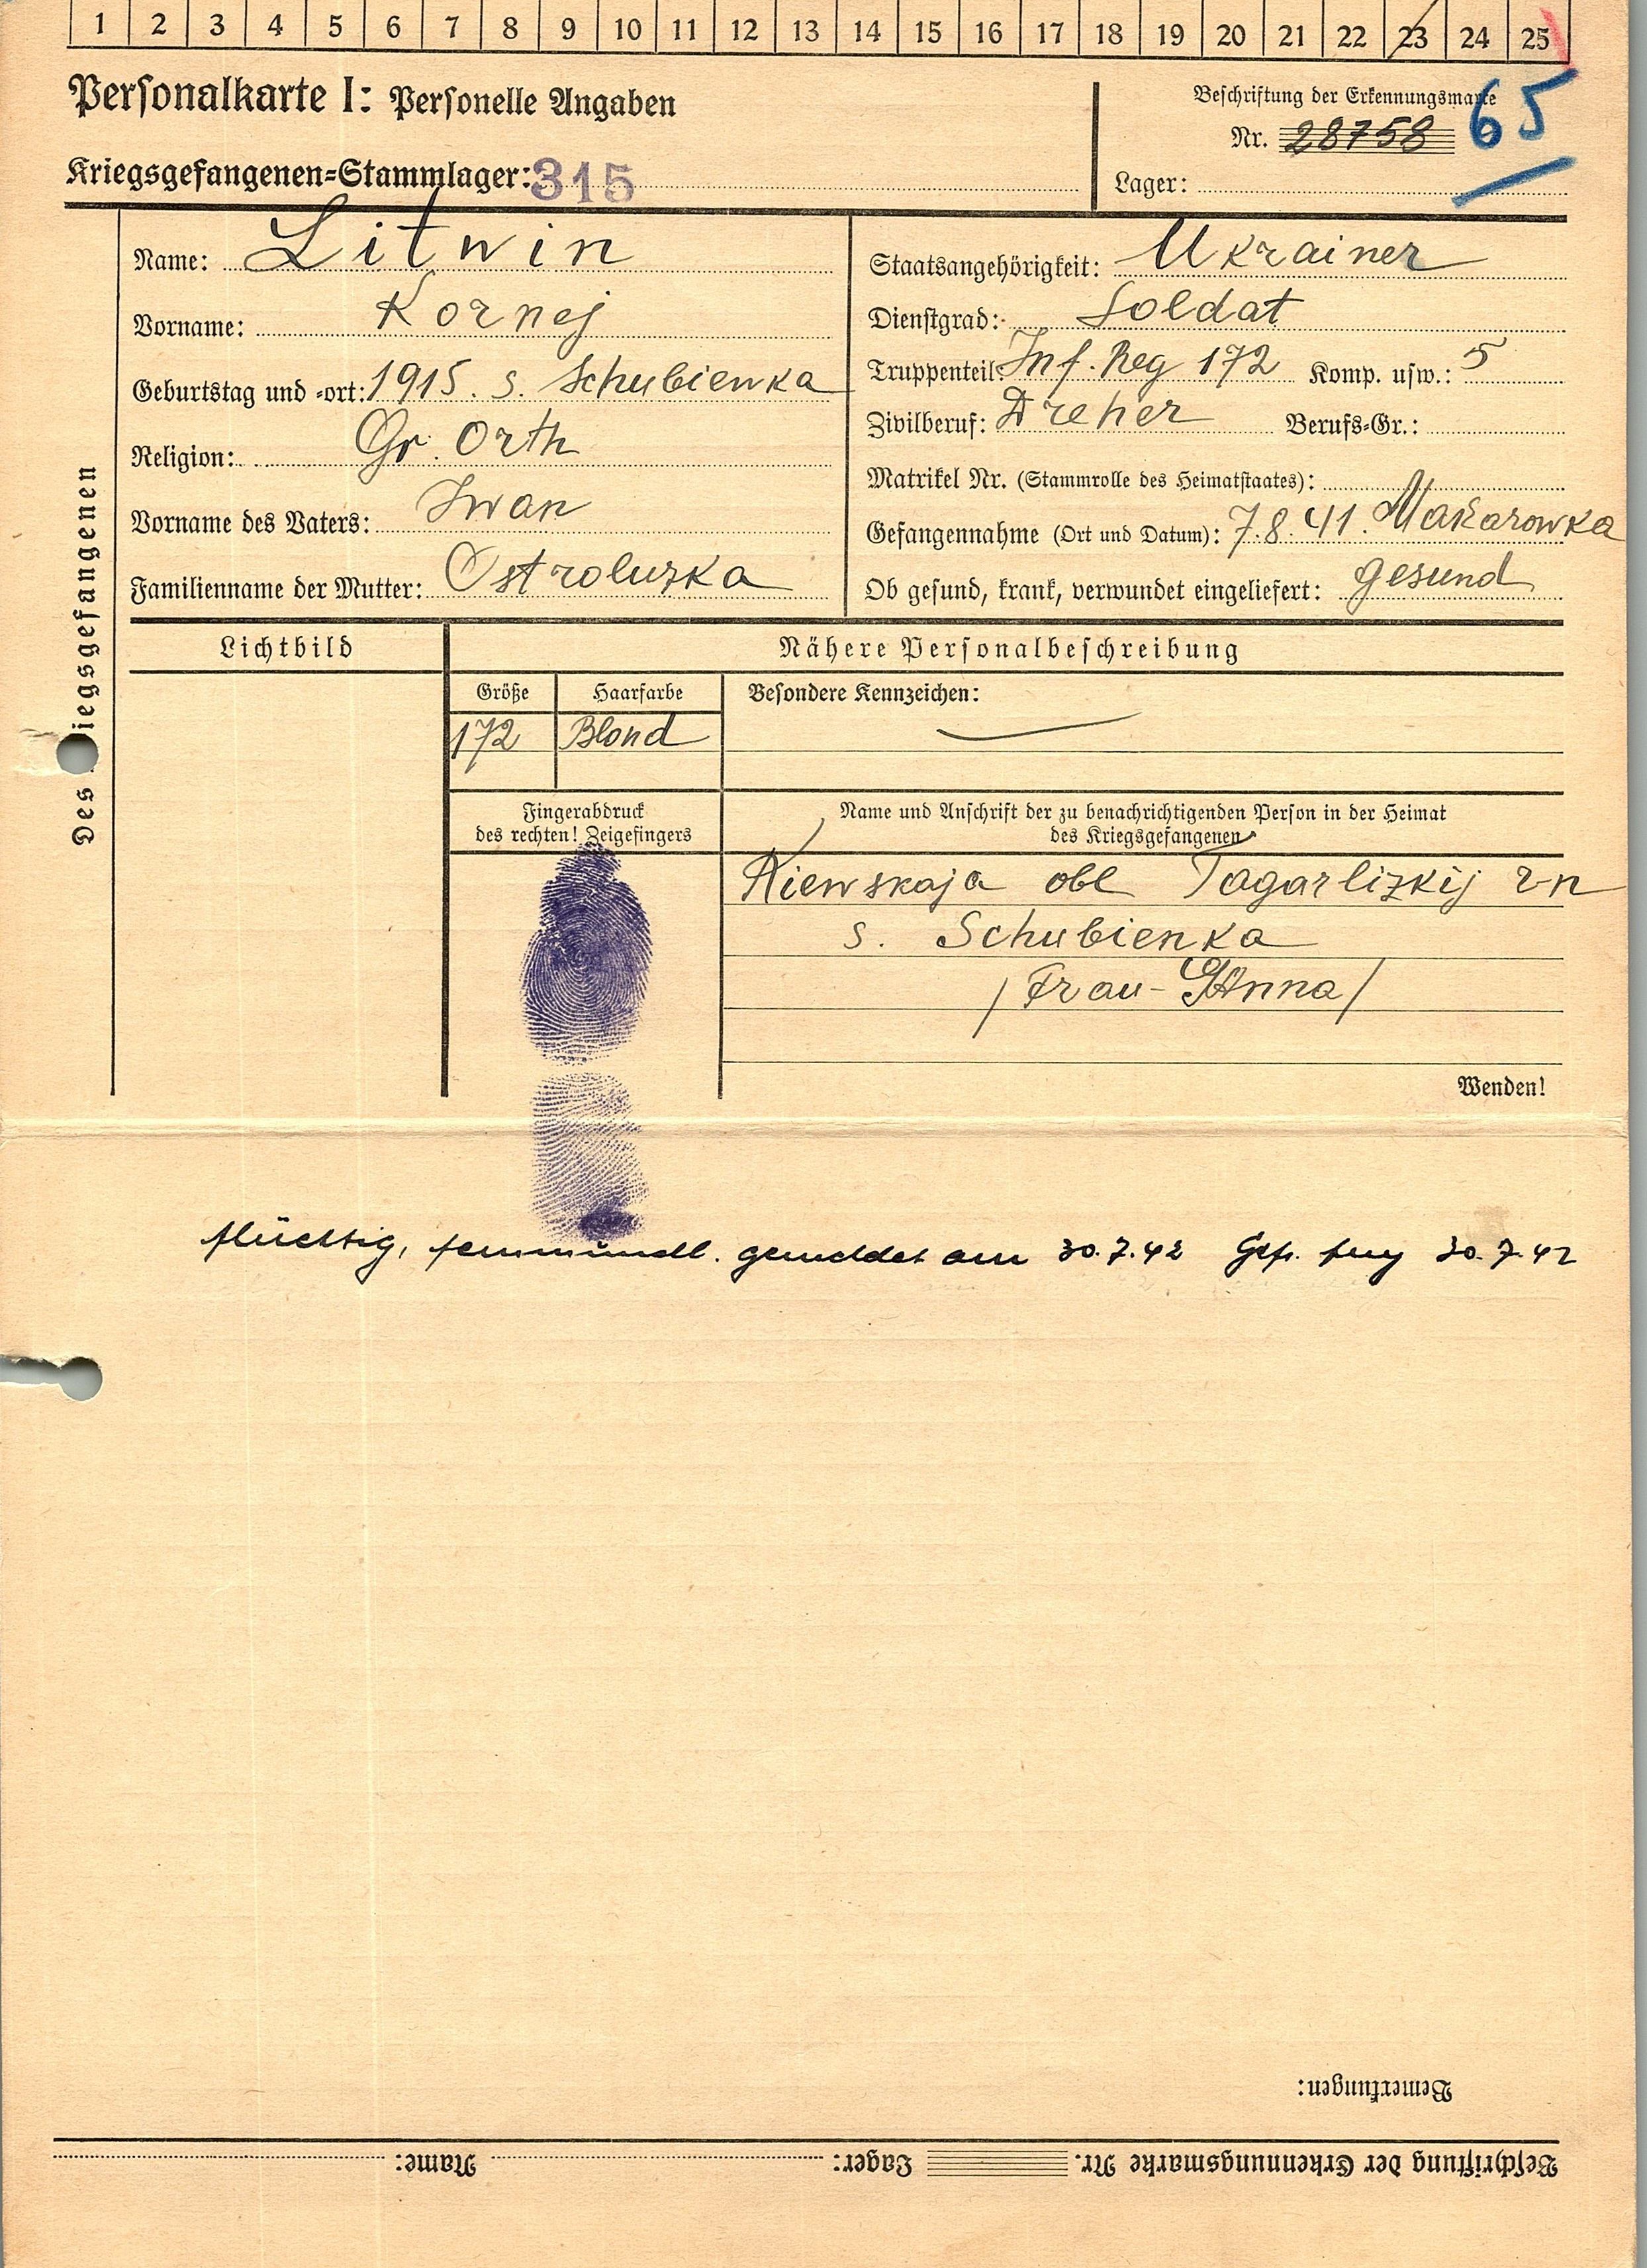 1 2 3 4 5 6 7 8 9 10 11 12 13 14 15 16 17 18 19 20 21 22 23 24 25
Personalkarte I: Personelle Angaben
Beschriftung der Erkennungsmarke
Nr. 28758 65
Kriegsgefangenen-Stammlager: 315
Lager:
Des Kriegsgefangenen
Name: Litwin
Vorname: Kornej
Geburtstag und -ort: 1915. s. Schubienka
Religion: Gr. Orth
Vorname des Vaters: Iwan
Familienname der Mutter: Ostroluzka
Staatsangehörigkeit: Ukrainer
Dienstgrad: Soldat
Truppenteil: Inf. Reg 172 Komp. usw.: 5
Zivilberuf: Dreher Berufs-Gr.:
Matrikel Nr. (Stammrolle des Heimatstaates):
Gefangennahme (Ort und Datum): 7.8.41. Makarowka
Ob gesund, krank, verwundet eingeliefert: gesund
Lichtbild
Nähere Personalbeschreibung
Größe Haarfarbe Besondere Kennzeichen:
172 Blond —
Fingerabdruck
des rechten! Zeigefingers
Name und Anschrift der zu benachrichtigenden Person in der Heimat
des Kriegsgefangenen
Kiewskaja obl Tagarlizkij r-n
s. Schubienka
/Frau - Anna/
Wenden!
flüchtig, fernmündl. gemeldet am 30.7.42 30.7.42
Bemerkungen:
Beschriftung der Erkennungsmarke Nr. Lager: Name: